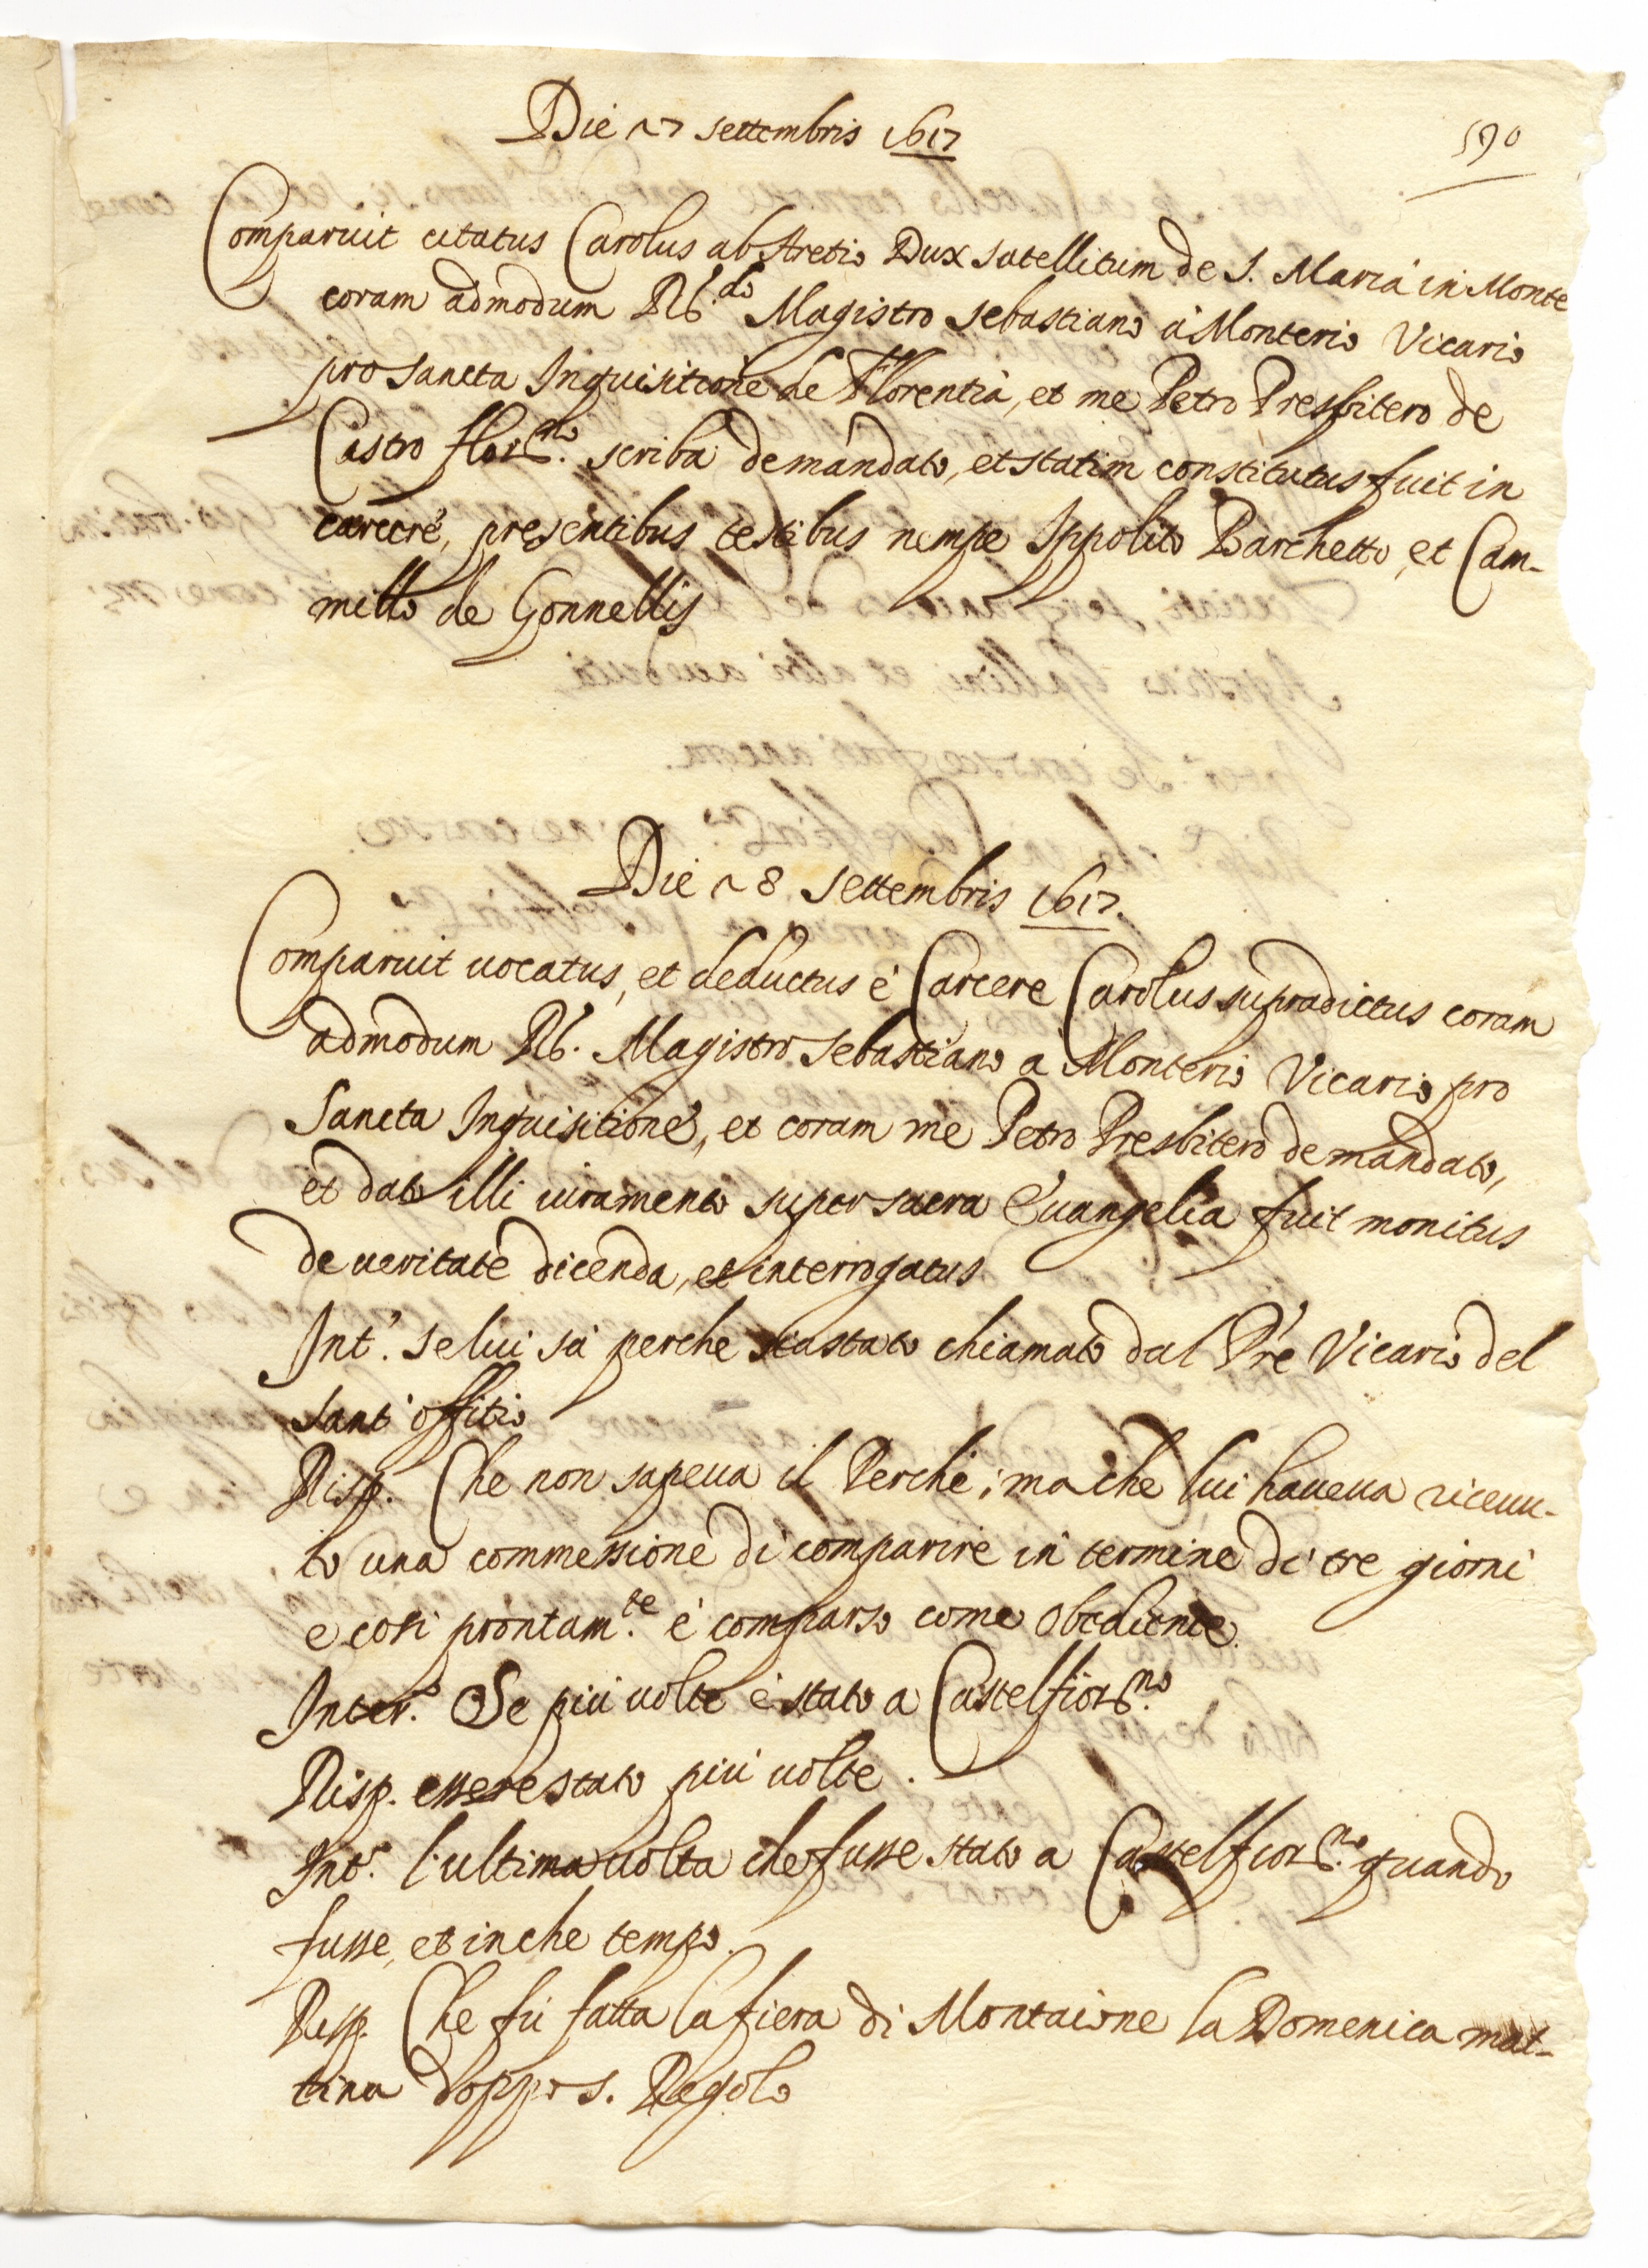 Die 27 settembris 1617
590
Comparuit citatus Carolus ab Aretio Dux satellitum de S. Maria in Monte
coram admodum Rb.do Magistro Sebastiano à Monterio Vicario
pro sancta Inquisitione de Florentia, et me Petro Presbitero de
Castro flor.no scriba demandato, et statim constitutus fuit in
carcere, presentibus testibus nempe Ippolito Barchetto, et Cam-
millo de Gonnellis
Die 28 settembris 1617.
Comparuit uocatus, et deductus è Carcere Carolus supradictus coram
admodum Rb. Magistro Sebastiano a Monterio Vicario pro
Sancta Inquisitione, et coram me Petro Presbitero demandato,
et dato illi iuramento super sacra Euangelia fuit monitus
de ueritate dicenda, et interrogatus
Int.o se lui sà perche sia stato chiamato dal Pre Vicario del
sant' offitio
Risp. Che non sapeua il Perche; ma che lui haueua riceuu-
to una commessione di comparire in termine di tre giorni
e cosi prontam.te è comparso come obediente.
Inter.o Se piu uolte è stato a Castelfior.no
Risp. essere stato piu uolte.
Int.o l'ultima uolta che fusse stato a Castelfior.no quando
fusse, et in che tempo.
Risp. Che fù fatta la fiera di Montaione la Domenica mat-
tina doppo s. Regolo